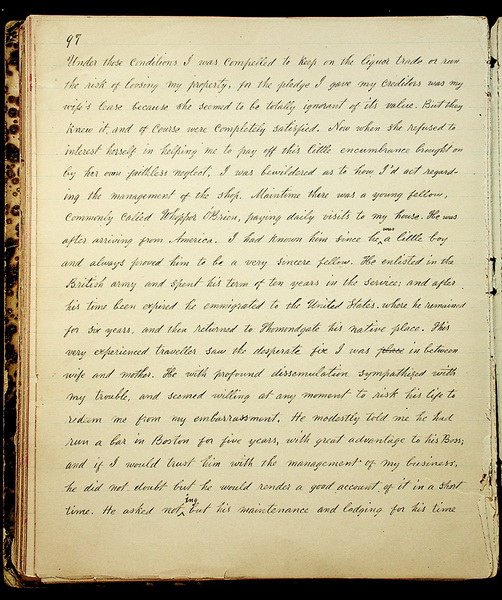 97
Under those Conditions I was Compelled to keep on the liquor trade or run
the risk of loosing my property, for the pledge I gave my Creditors was my
wife's lease because she seemed to be totally ignorant of its value. But they
knew it, and of Course were Completely satisfied. Now when she refused to
interest herself in helping me to pay off this little encumbrance brought on
by her own faithless neglect, I was bewildered as to how I'd act regard-
ing the management of the shop. Maintime there was a young fellow,
Commonly Called Whopper O'Brien, paying daily visits to my house. He was
after arriving from America. I had known him since he was a little boy
and always proved him to be a very sincere fellow. He enlisted in the
British army and spent his term of ten years in the Service: and after
his time been expired he emmigrated to the United States, where he remained
for six years, and then returned to Thomondgate his native place. This
very experienced traveller saw the desperate fix I was place in between
wife and mother. He with profound dissemulation sympathized with
my trouble, and seemed willing at any moment to risk his life to
redeem me from my embarrassment. He modestly told me he had
run a bar in Boston for five years, with great advantage to his Boss;
and if I would trust him with the management of my business,
he did not doubt but he would render a good account of it in a short
time. He asked nothing but his maintenance and lodging for his time